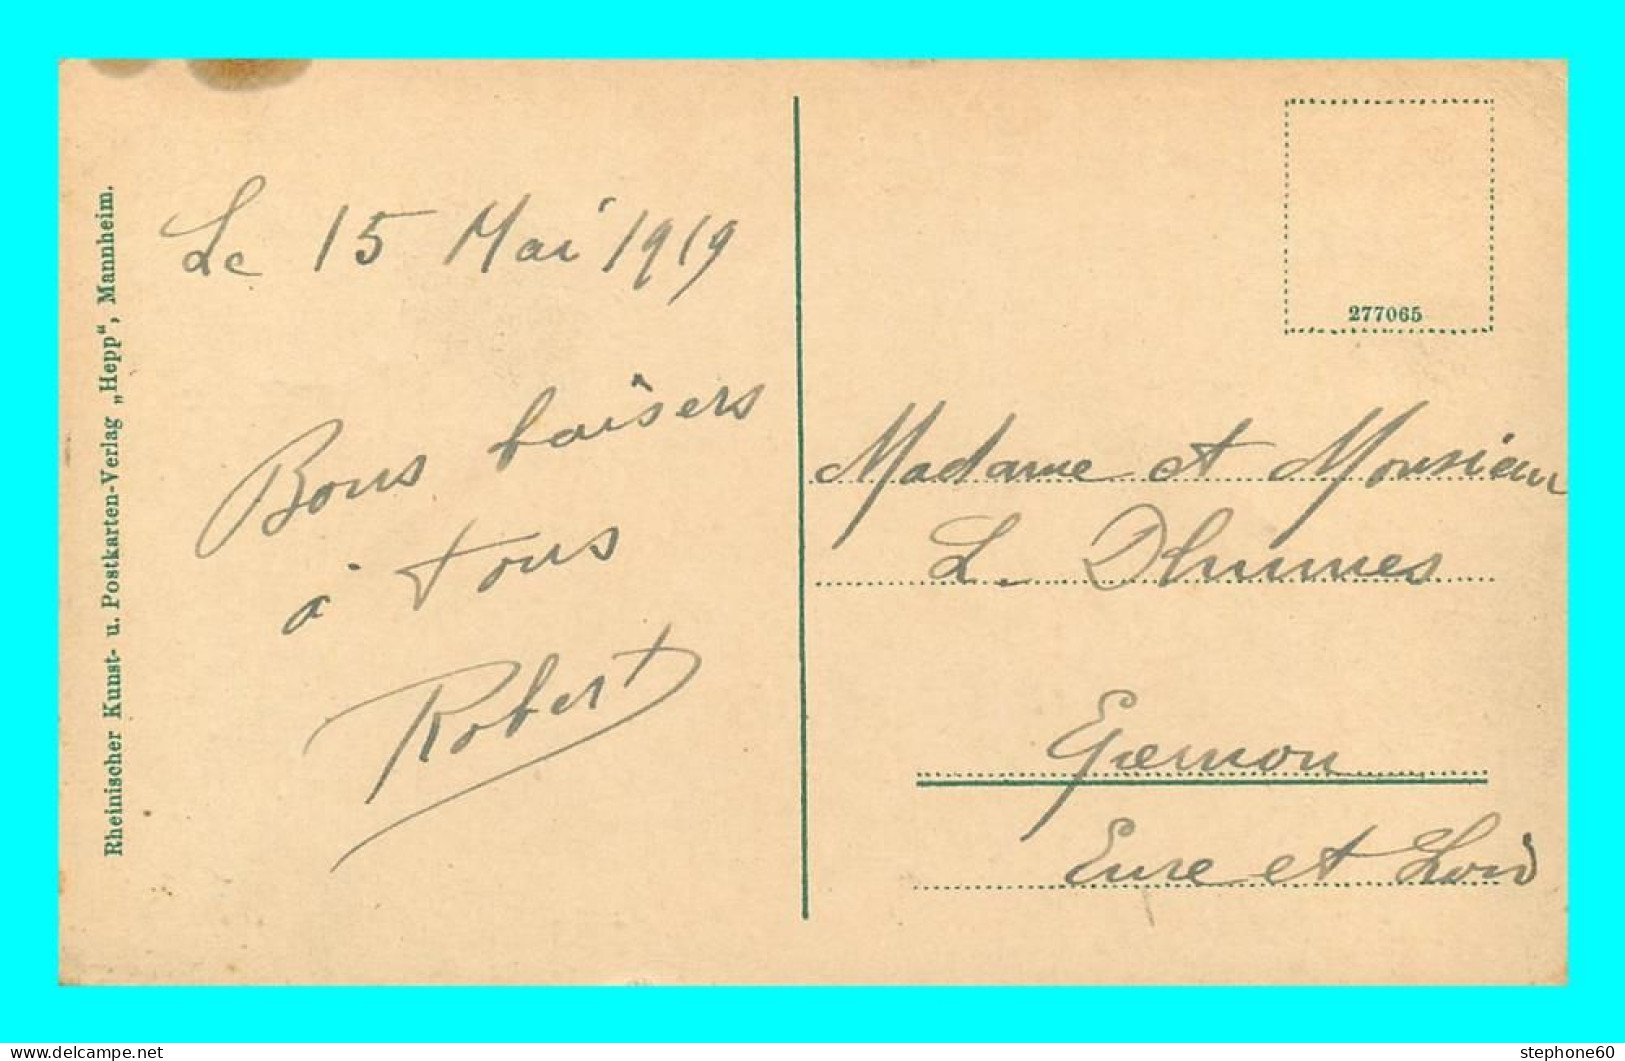 Rheinischer Kunst- u. Postkarten-Verlag „Hepp“, Mannheim.
Le 15 Mai 1919
Bons baisers
à tous
Robert
277065
Madame et Monsieur
L.
Eure et Loir
stephone60